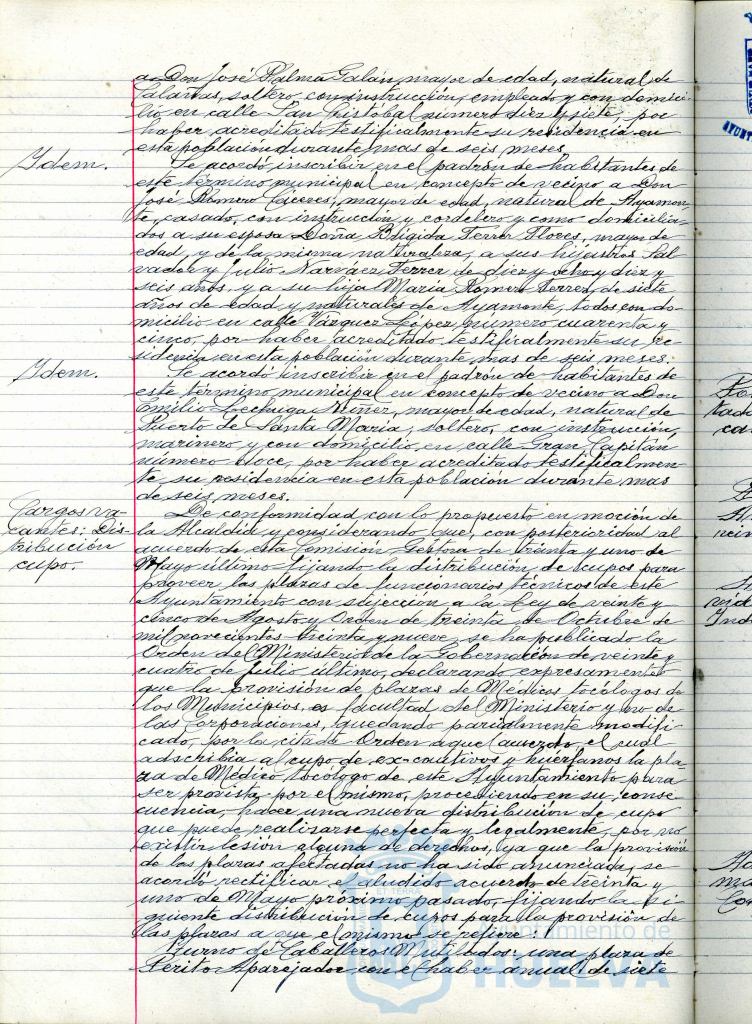 a Don José Palma Galán, mayor de edad, natural de
Calañas, soltero, con instrucción, empleado y con domici-
lio en calle San Cristobal número diez y siete, por
haber acreditado testificalmente su residencia en
esta población durante mas de seis meses.
Idem.
Se acordó inscribir en el padrón de habitantes de
este término municipal en concepto de vecino a Don
José Romero Cáceres, mayor de edad, natural de Ayamon-
te, casado, con instrucción y cordelero y como domicilia-
dos a su esposa Doña Brígida Ferrer Flores, mayor de
edad, y de la misma naturaleza, a sus hijastros Sal-
vador y Julio Narváez Ferrer de diez y ocho y diez y
seis años, y a su hija María Romero Ferrer, de siete
años de edad y naturales de Ayamonte, todos con do-
micilio en calle Vázquez López, número cuarenta y
cinco, por haber acreditado testificalmente su re-
sidencia en esta población durante mas de seis meses.
Idem.
Se acordó inscribir en el padrón de habitantes de
este término municipal en concepto de vecino a Don
Emilio Lechuga Núñez, mayor de edad, natural de
Puerto de Santa María, soltero, con instrucción,
marinero y con domicilio en calle Gran Capitán
número doce, por haber acreditado testificalmen-
te su residencia en esta población durante mas
de seis meses.
Cargos va-
cantes: Dis-
tribución
cupo.
De conformidad con lo propuesto en moción de
la Alcaldía y considerando que, con posterioridad al
acuerdo de esta Comisión Gestora de treinta y uno de
Mayo último fijando la distribución de cupos para
proveer las plazas de funcionarios técnicos de este
Ayuntamiento con sujección a la Ley de veinte y
cinco de Agosto y Orden de treinta de Octubre de
mil novecientos treinta y nueve, se ha publicado la
Orden del Ministerio de la Gobernación de veinte y
cuatro de Julio último, declarando expresamente
que la provisión de plazas de Médicos tocólogos de
los Municipios, es facultad del Ministerio y no de
las Corporaciones, quedando parcialmente modifi-
cado, por la citada Orden aquel acuerdo el cual
adscribía al cupo de ex-cautivos y huérfanos la pla-
za de Médico tocólogo de este Ayuntamiento para
ser provista por el mismo, procediendo en su conse-
cuencia, hacer una nueva distribución de cupo
que puede realizarse perfecta y legalmente, por no
existir lesión alguna de derechos, ya que la provisión
de las plazas afectadas no ha sido anunciada, se
acordó rectificar el aludido acuerdo de treinta y
uno de Mayo próximo pasado, fijando la si-
guiente distribución de cupos para la provisión de
las plazas a que el mismo se refiere:
Turno de Caballeros Mutilados: una plaza de
Perito Aparejador con el haber anual de siete
Ayuntamiento de
HUELVA